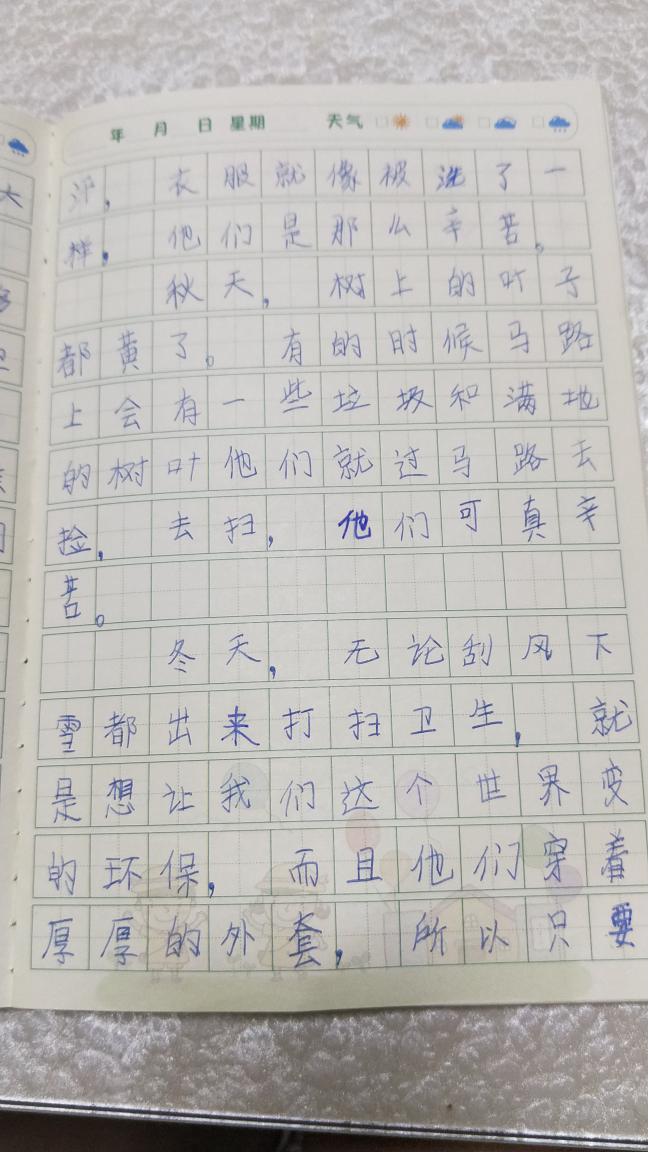 年 月 日 星期 天气
汗，衣服就像被洗了一
样，他们是那么辛苦。
秋天，树上的叶子
都黄了。有的时候马路
上会有一些垃圾和满地
的树叶他们就过马路去
捡，去扫，他们可真辛
苦。
冬天，无论刮风下
雪都出来打扫卫生，就
是想让我们这个世界变
的环保，而且他们穿着
厚厚的外套，所以只要